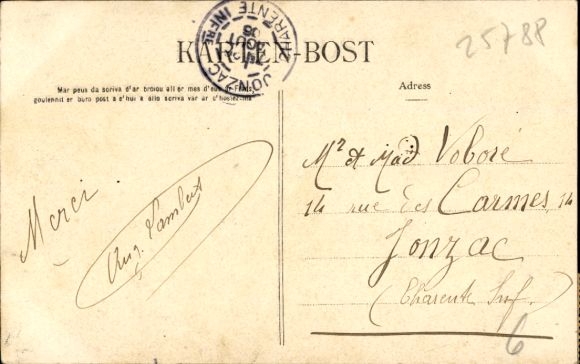 25788
JONZAC
CHARENTE INFRE
AOUT
KARTEN-BOST
Mar peus da scriva d'ar broiou all er mes d'eus ar Frans,
goulennit er buro post a c'hui a
scriva var ar
Adress
Mr et Mad Voboré
14 rue des Carmes, 14
Jonzac
(Charente Inf.
Merci
Aug. Lambert
6